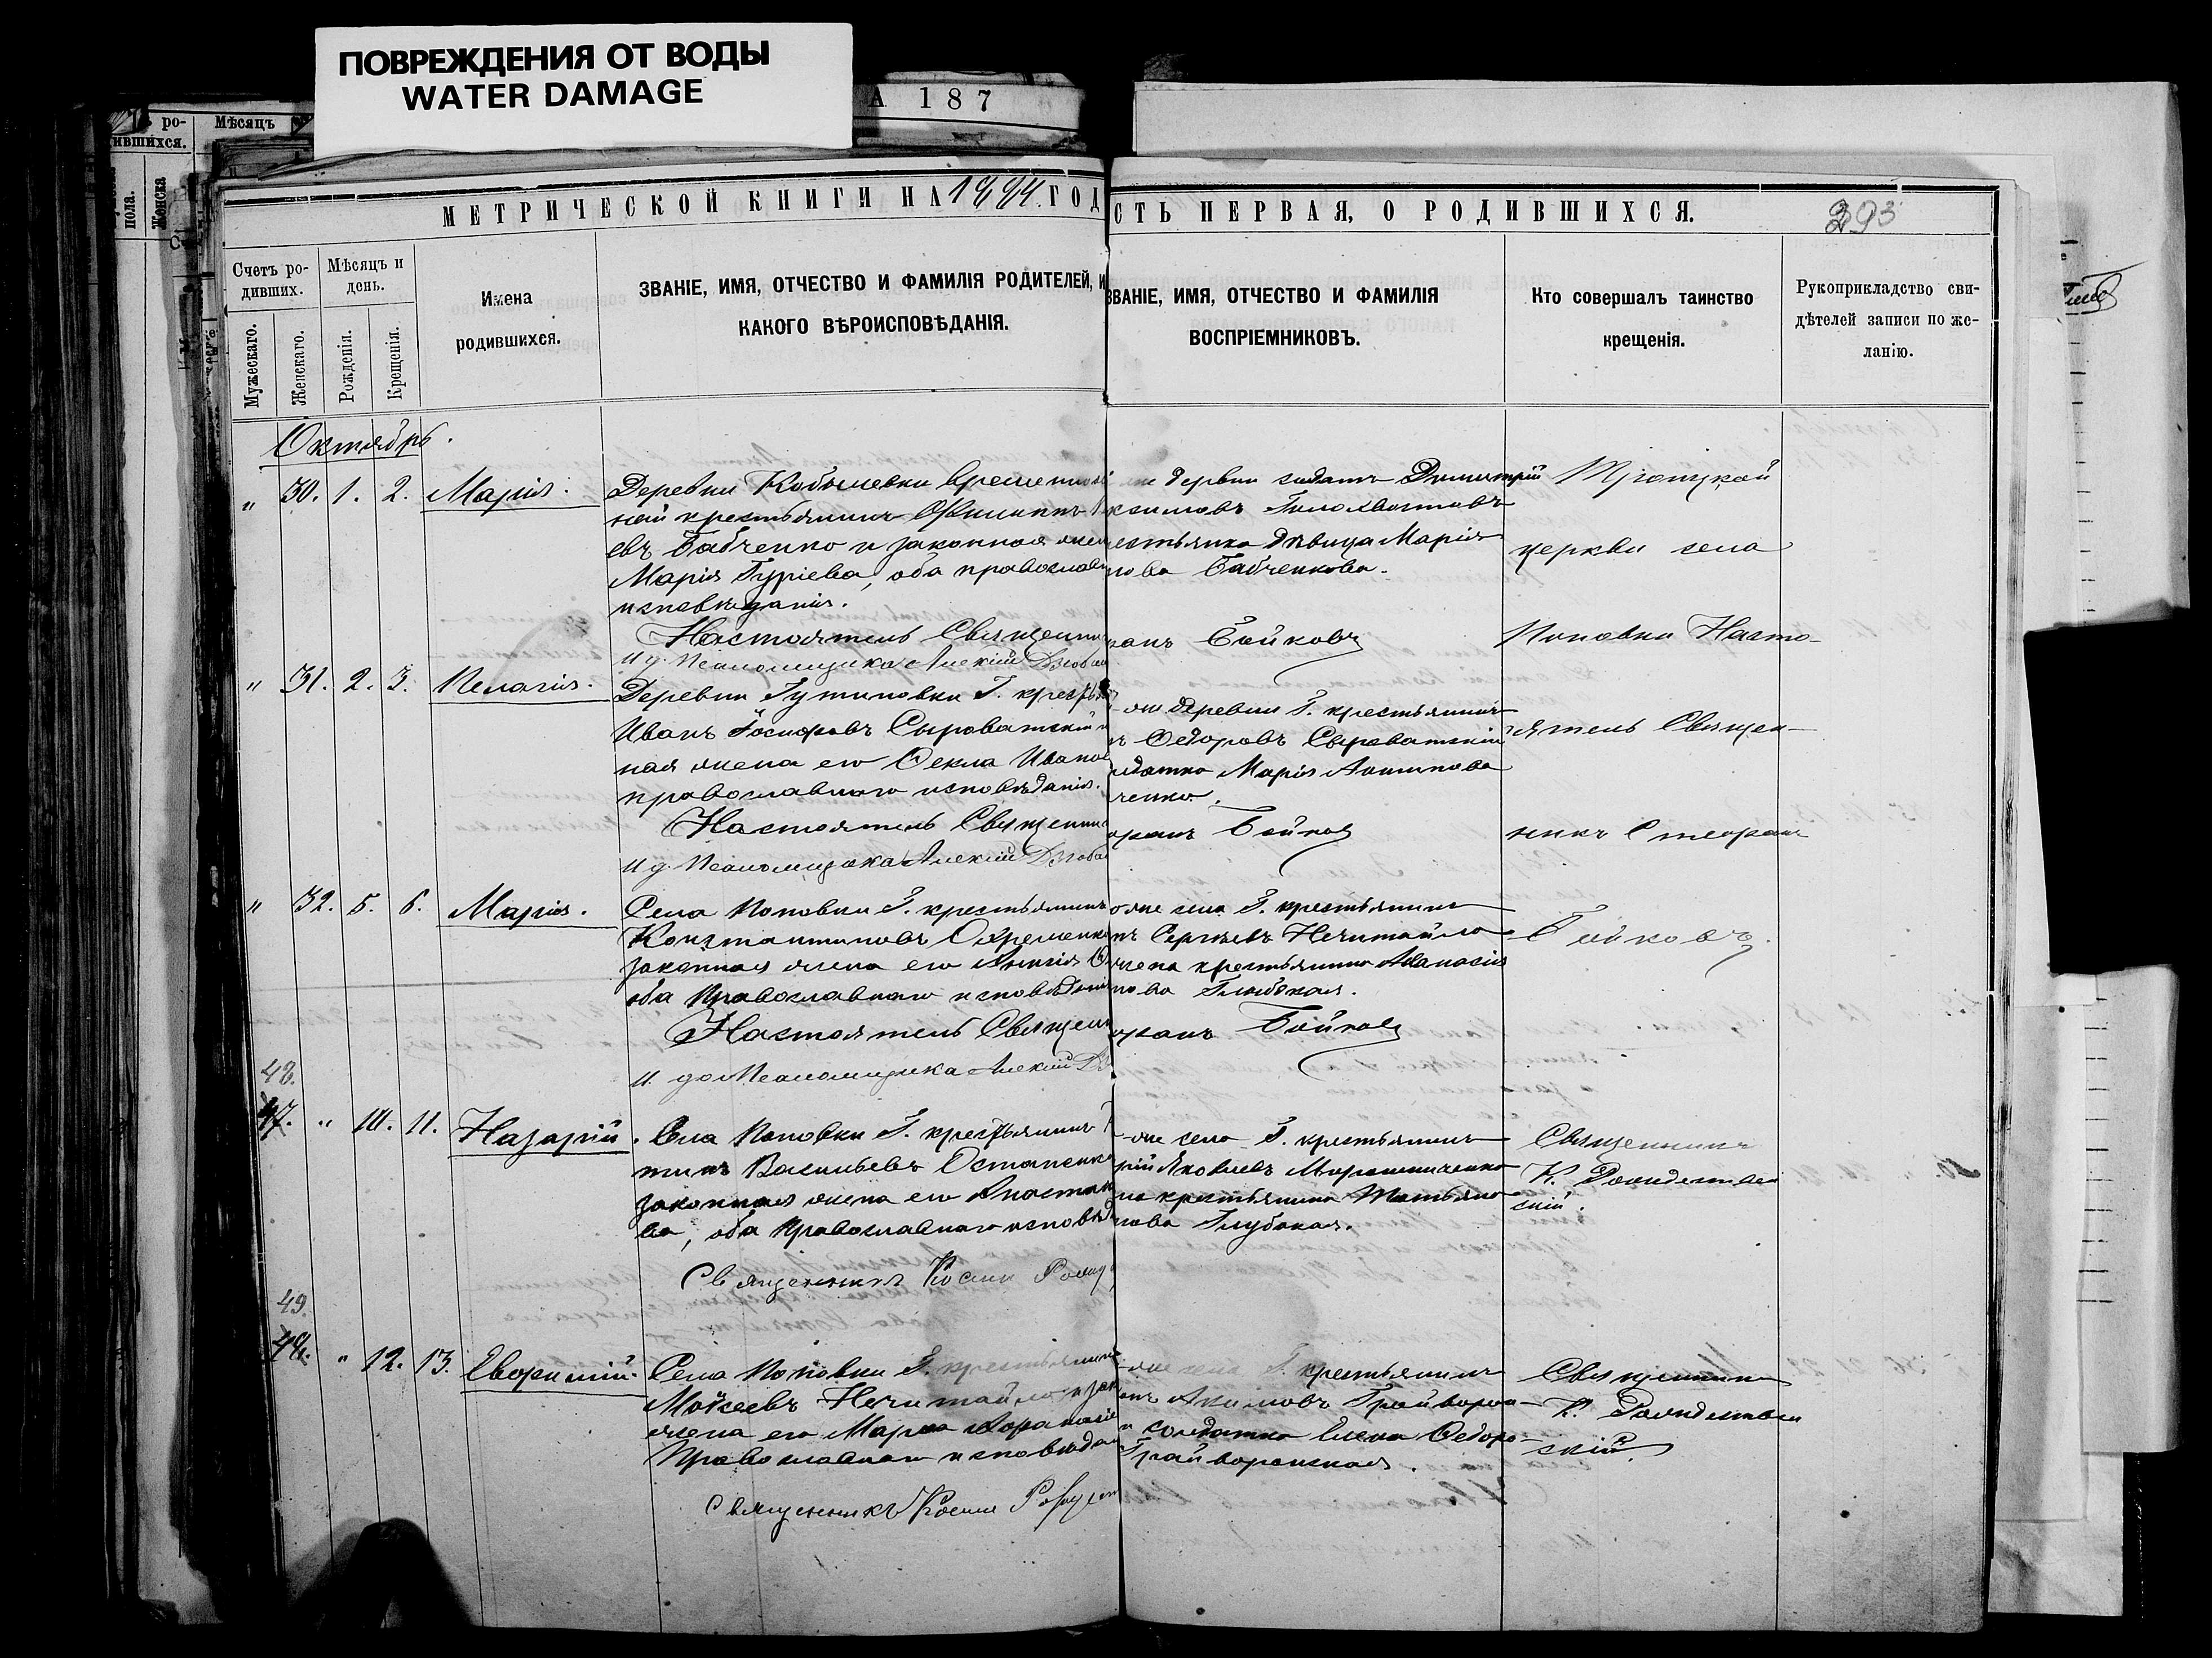 ПОВРЕЖДЕНИЯ ОТ ВОДЫ
WATER DAMAGE
А 187
ро-
ившихся.
Мѣсяцъ
пола.
Женска
МЕТРИЧЕСКОЙ КНИГИ НА 1884 ГОД
СТЬ ПЕРВАЯ, О РОДИВШИХСЯ.
393
Счетъ ро-
дивших.
Мѣсяцъ и
день.
Мужескаго.
Женскаго.
Рожденія.
Крещенія.
Имена
родившихся.
ЗВАНІЕ, ИМЯ, ОТЧЕСТВО И ФАМИЛІЯ РОДИТЕЛЕЙ, И
КАКОГО ВѢРОИСПОВѢДАНІЯ.
ЗВАНІЕ, ИМЯ, ОТЧЕСТВО И ФАМИЛІЯ
ВОСПРІЕМНИКОВЪ.
Кто совершалъ таинство
крещенія.
Рукоприкладство сви-
дѣтелей записи по же-
ланію.
Октябрь.
" 30. 1. 2. Марія.
Деревни Кобылевки временно
ной крестьянинъ Филиппъ
евъ Бабченко и законная жен
Марія Гуріева, оба православн
исповѣданія.
Настоятель Священни
И д. Псаломщика Алексій
же дервни солдатъ Димитрій
ксимовъ Голохвостовъ
естьянка дѣвица Марія
нова Бабченкова.
фанъ Бойковъ
Троицкой
церкви села
Поповки Насто-
ятель Священ-
никъ Стефанъ
Бойковъ.
" 31. 2. 3. Пелагія.
Деревни Гутиповки Г. крестья
Иванъ Іосифовъ Сыроватскій
ная жена его Ѳекла Иванов
православнаго исповѣданія.
Настоятель Священни
И д. Псаломщика Алексій
-же деревни Г. крестьянинъ
ъ Ѳедоровъ Сыроватскій
лдатка Марія Антипова
ченко.
фанъ Бойковъ
" 32. 5. 6. Марія.
Села Поповки Г. крестьянинъ
Константиновъ Охременко
законная жена его
оба Православнаго исповѣданія
Настоятель Священ
И. до Псаломщика Алексій
оже села Г. крестьянинъ
нъ Сергѣевъ Нечитайло
жена крестьянина Аѳанасія
нова
фанъ Бойковъ
48.
47. " 10. 11. Назарій.
Села Поповки Г. крестьянинъ
тинъ Васильевъ Остапенко
законная жена его Анастас
ва, оба Православнаго исповѣд
Священникъ Косма Рожд
-же села Г. крестьянинъ
рій Яковлевъ Мирошниченко
на крестьянина Татьяна
нова Глубокая.
Священникъ
К. Рождествен
скій.
49.
48. " 12. 13. Евфимій.
Села Поповки Г. крестьянинъ
Моѵсеевъ Нечитайло и зак
жена его Марѳа Аѳанасіе
Православнаго исповѣдан
Священникъ Косма Рождест
-же села Г. крестьянинъ
нъ Акимовъ Грайворон-
и солдатка Елена Ѳедоро-
Грайворонская.
Священникъ
К. Рождествен
скій.